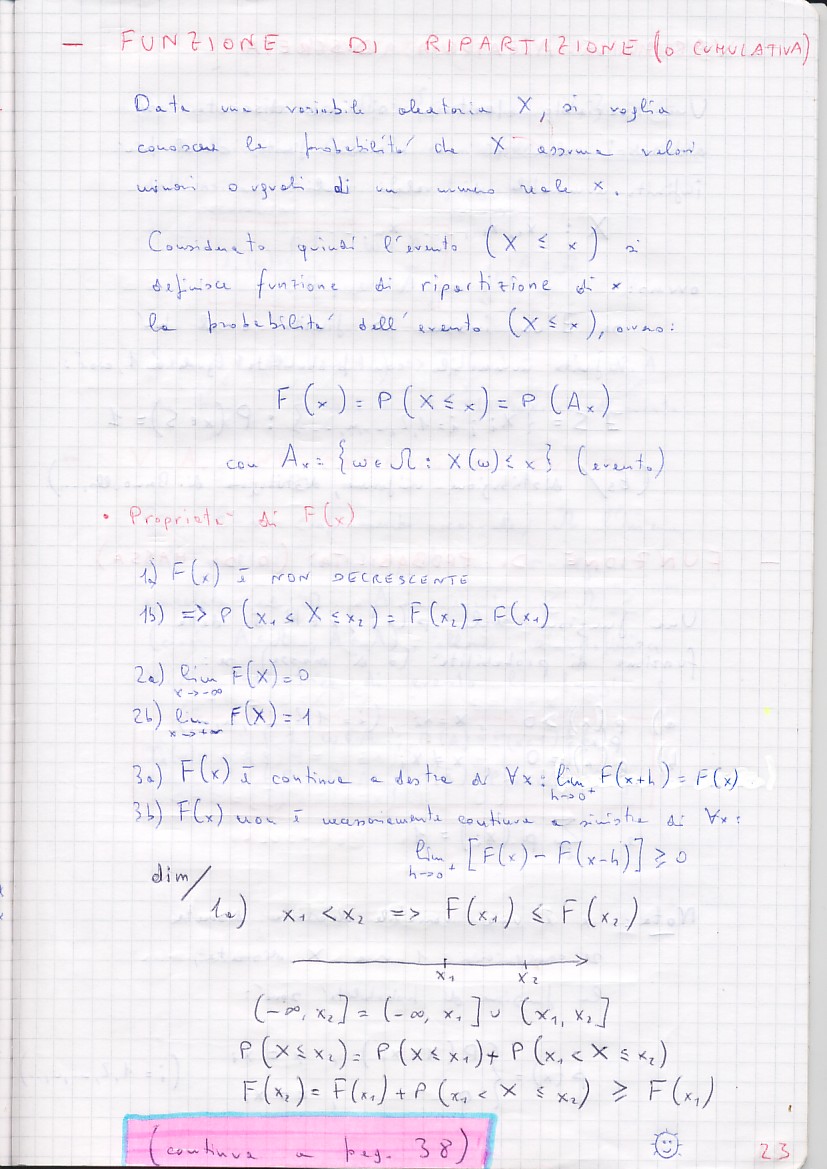 – FUNZIONE DI RIPARTIZIONE (O CUMULATIVA)
Data una variabile aleatoria X, si voglia
conoscere la probabilità che X assuma valori
minori o uguali di un numero reale x.
Considerato quindi l'evento (X ≤ x) si
definisce funzione di ripartizione di x
la probabilità dell'evento (X ≤ x), ovvero:
F(x) = P(X ≤ x) = P(Aₓ)
con Aₓ = {ω ∈ Ω : X(ω) ≤ x} (evento)
• Proprietà di F(x)
1a) F(x) è NON DECRESCENTE
1b) => P(x₁ < X ≤ x₂) = F(x₂) – F(x₁)
2a) lim F(X) = 0
x→-∞
2b) lim F(X) = 1
x→+∞
3a) F(x) è continua a destra di ∀x : lim F(x+h) = F(x)
h→0⁺
3b) F(x) non è necessariamente continua a sinistra di ∀x :
lim [F(x) – F(x-h)] ≥ 0
h→0⁺
dim/
1a) x₁ < x₂ => F(x₁) ≤ F(x₂)
x₁ x₂
(-∞, x₂] = (-∞, x₁] ∪ (x₁, x₂]
P(X ≤ x₂) = P(X ≤ x₁) + P(x₁ < X ≤ x₂)
F(x₂) = F(x₁) + P(x₁ < X ≤ x₂) ≥ F(x₁)
(continua a pag. 38)
23